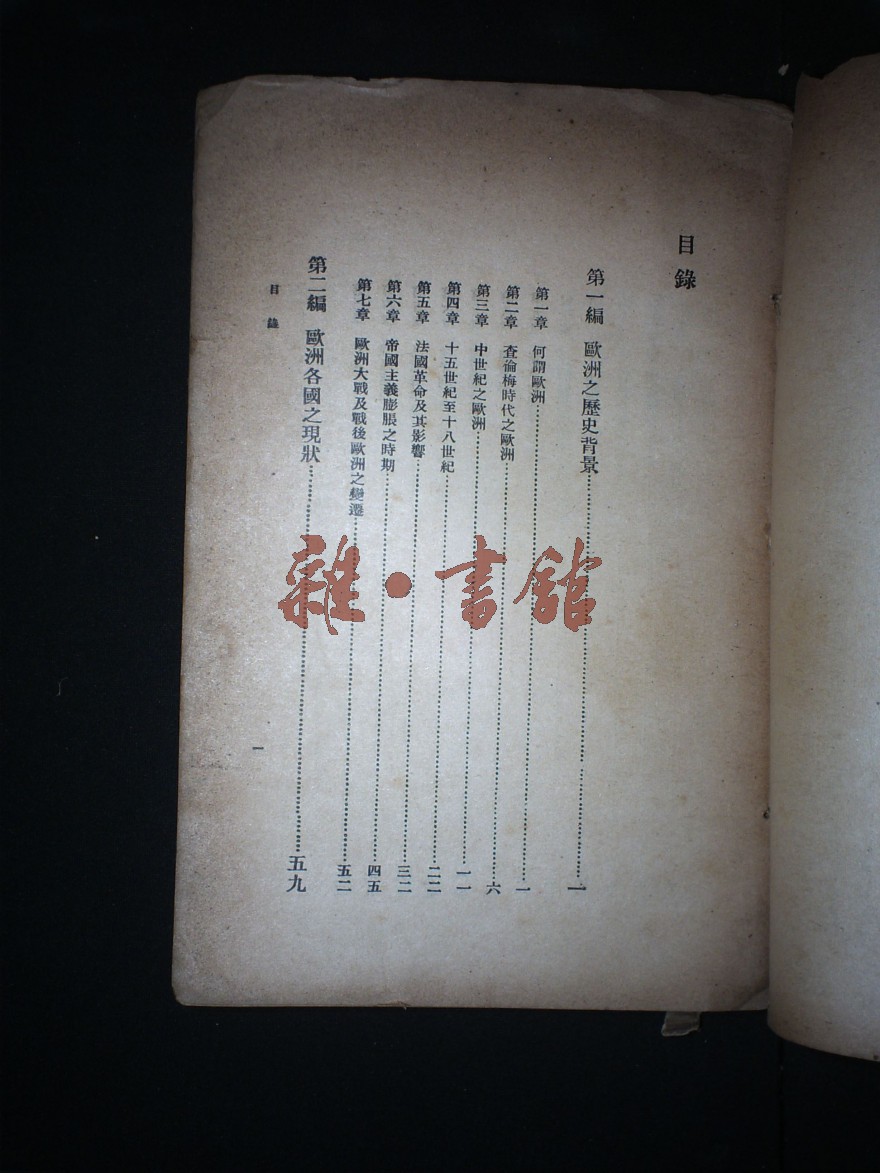 目錄
第一編 歐洲之歷史背景……一
第一章 何謂歐洲……一
第二章 查倫梅時代之歐洲……六
第三章 中世紀之歐洲……一一
第四章 十五世紀至十八世紀……二二
第五章 法國革命及其影響……三二
第六章 帝國主義膨脹之時期……四五
第七章 歐洲大戰及戰後歐洲之變遷……五二
第二編 歐洲各國之現狀……五九
目錄
一
雜·書館